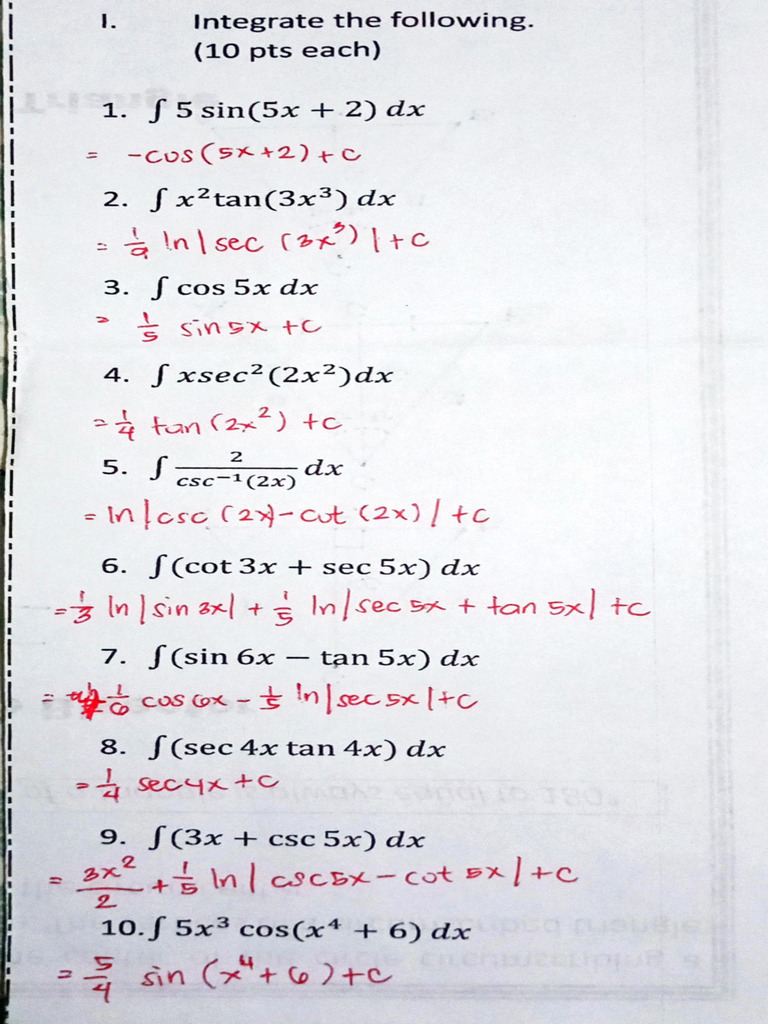 I. Integrate the following.
(10 pts each)
1. ∫ 5 sin(5x + 2) dx
= -cos(5x+2)+c
2. ∫ x²tan(3x³) dx
= 1/9 ln|sec (3x³)|+c
3. ∫ cos 5x dx
= 1/5 sin5x +c
4. ∫ xsec²(2x²)dx
= 1/4 tan(2x²) +c
5. ∫ 2/csc⁻¹(2x) dx
= ln|csc (2x)-cot (2x)| +c
6. ∫(cot 3x + sec 5x) dx
= 1/3 ln|sin 3x| + 1/5 ln|sec 5x + tan 5x| +c
7. ∫(sin 6x − tan 5x) dx
= - 1/6 cos 6x - 1/5 ln|sec 5x|+c
8. ∫(sec 4x tan 4x) dx
= 1/4 sec4x +c
9. ∫(3x + csc 5x) dx
= 3x²/2 + 1/5 ln|csc5x - cot 5x|+c
10.∫ 5x³ cos(x⁴ + 6) dx
= 5/4 sin (x⁴+6)+c